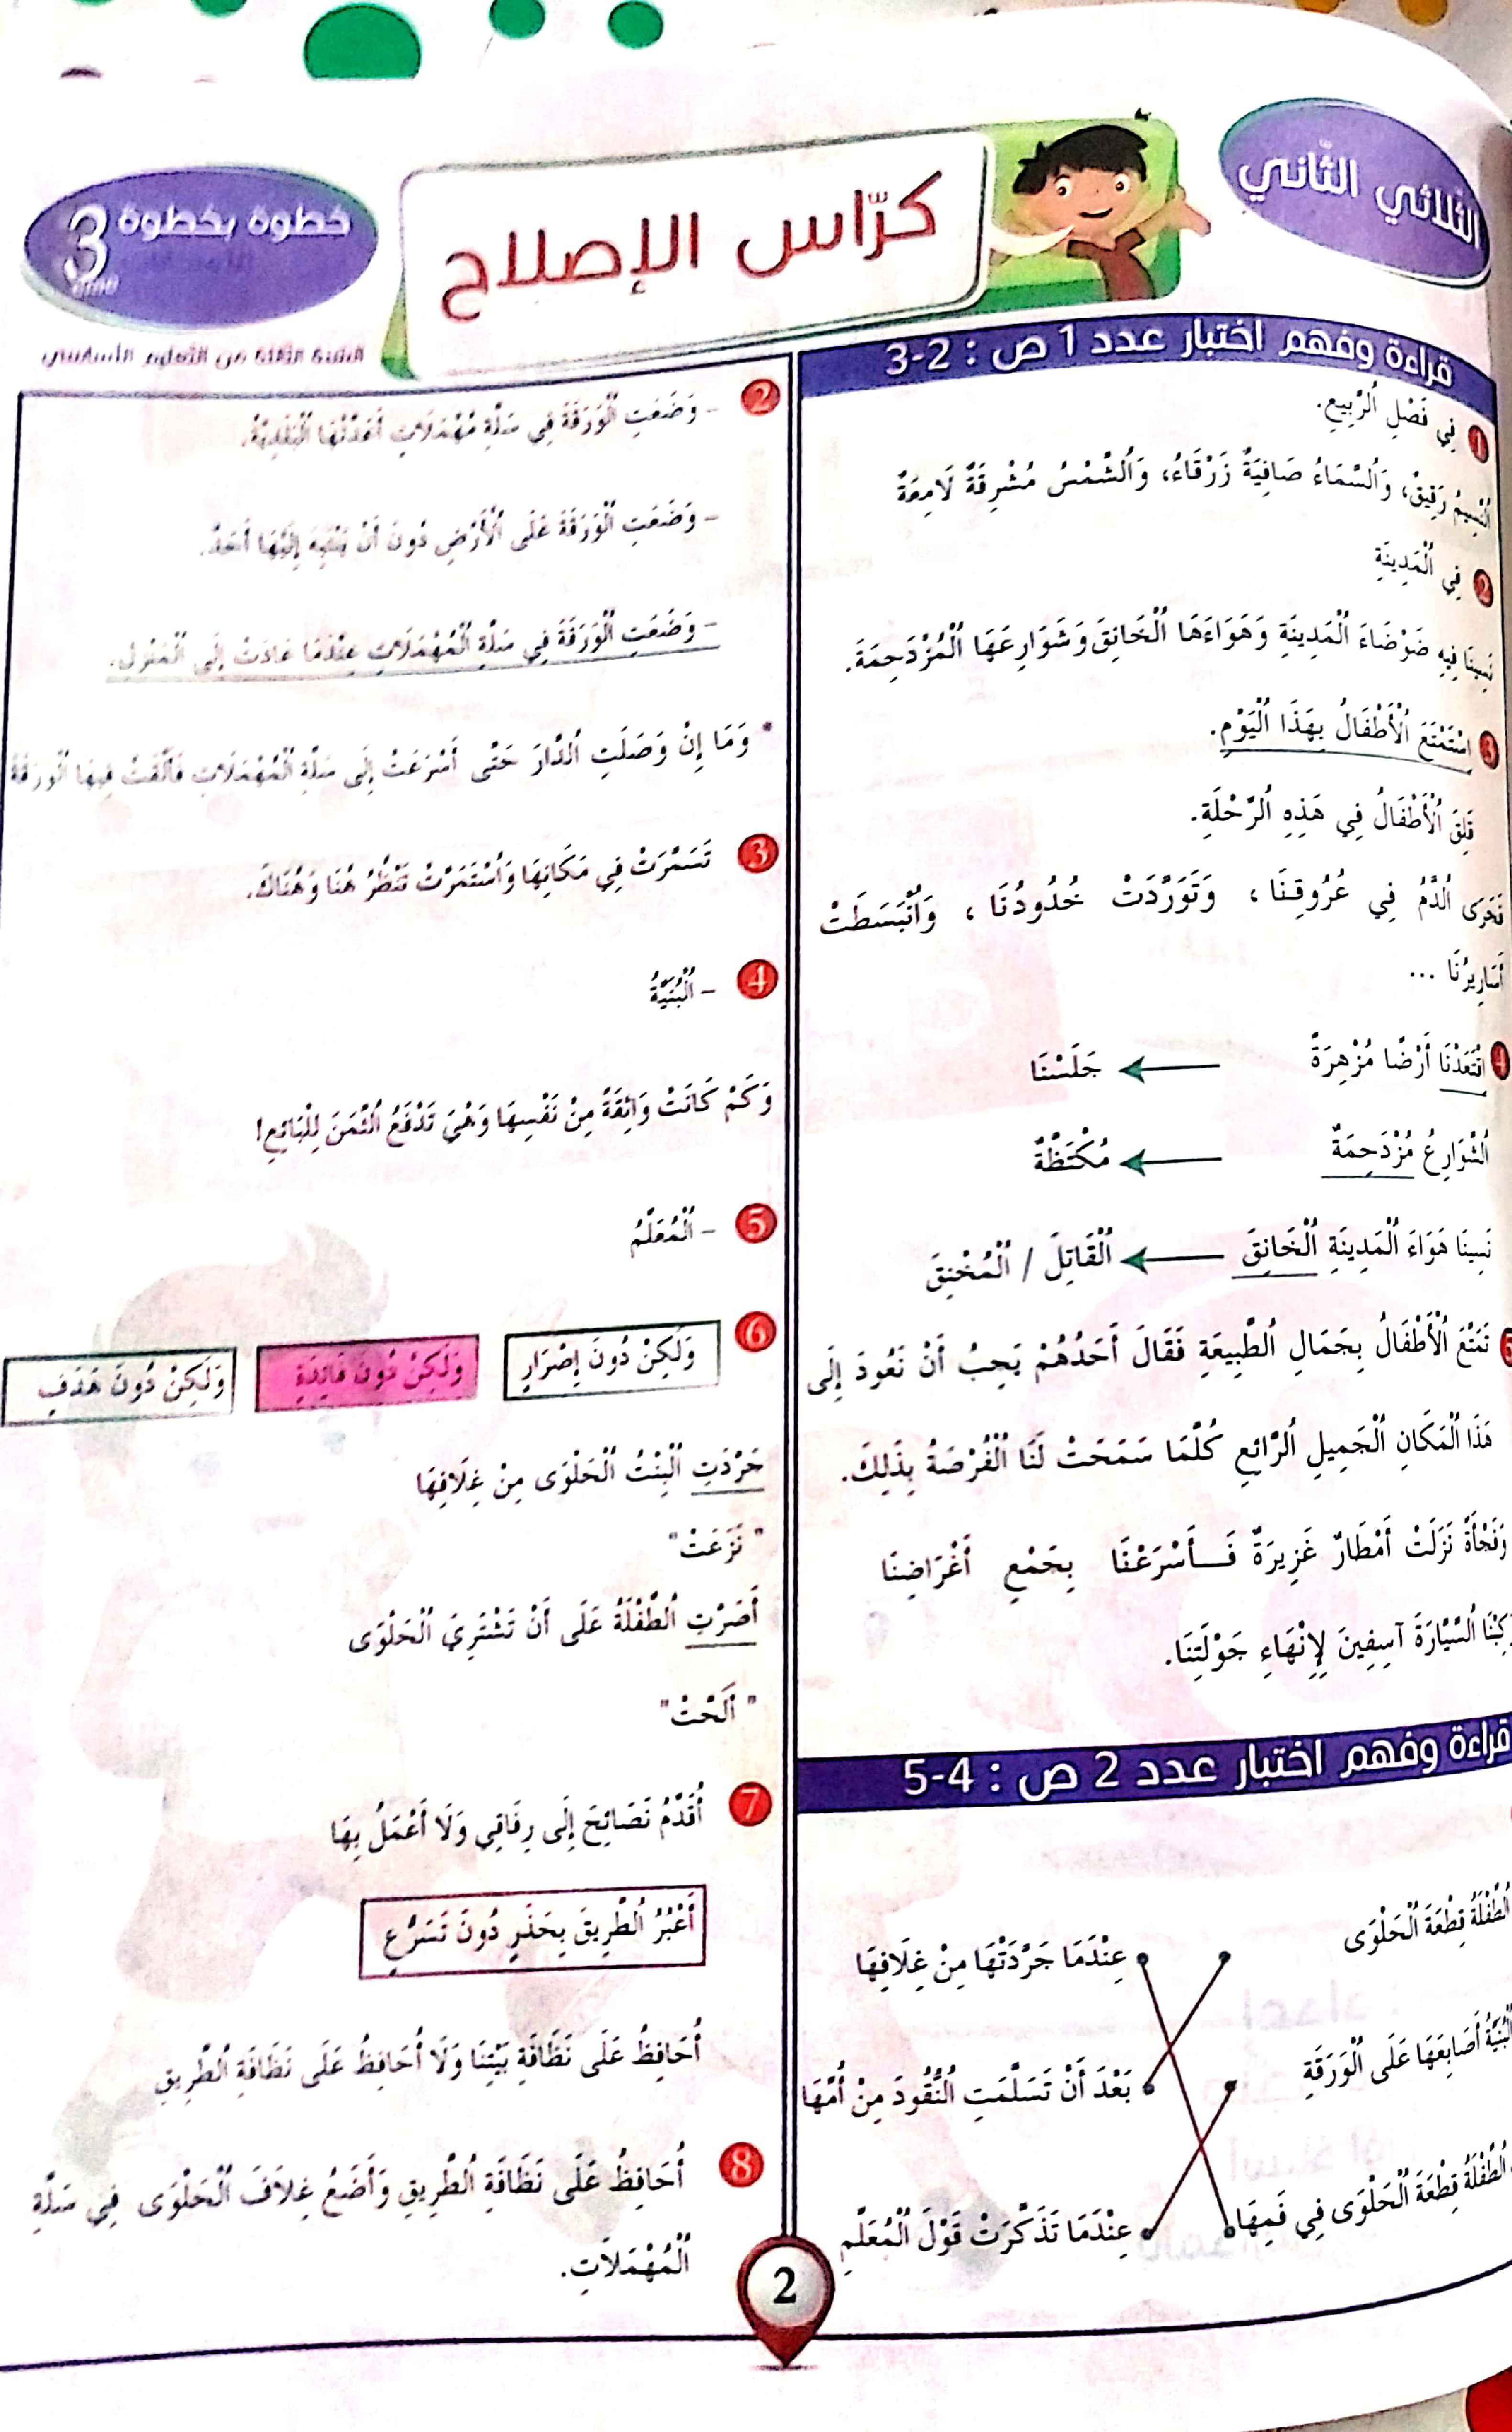 الثلاثي الثّاني
كرّاس الإصلاح
خطوة بخطوة 3
ème
السنة الثالثة من التعليم الأساسي
قراءة وفهم اختبار عدد 1 ص : 2-3
1 فِي فَصْلِ اُلرَّبِيعِ.
اُلنَّسِيمُ رَقِيقٌ، وَاُلسَّمَاءُ صَافِيَةٌ زَرْقَاءُ، وَاُلشَّمْسُ مُشْرِقَةٌ لَامِعَةٌ
2 فِي اُلْمَدِينَةِ
نَسِينَا فِيهِ ضَوْضَاءَ اُلْمَدِينَةِ وَهَوَاءَهَا اُلْخَانِقَ وَشَوَارِعَهَا اُلْمُزْدَحِمَةَ.
3 اِسْتَمْتَعَ اُلْأَطْفَالُ بِهَذَا اُلْيَوْمِ.
قَلِقَ اُلْأَطْفَالُ فِي هَذِهِ اُلرِّحْلَةِ.
فَجَرَى اُلدَّمُ فِي عُرُوقِنَا ، وَتَوَرَّدَتْ خُدُودُنَا ، وَاُنْبَسَطَتْ
أَسَارِيرُنَا ...
4 اِقْتَعَدْنَا أَرْضًا مُزْهِرَةً ← جَلَسْنَا
اُلشَّوَارِعُ مُزْدَحِمَةٌ ← مُكْتَظَّةٌ
نَسِينَا هَوَاءَ اُلْمَدِينَةِ اُلْخَانِقَ ← اُلْقَاتِلَ / اُلْمُخْنِقَ
5 تَمَتَّعَ اُلْأَطْفَالُ بِجَمَالِ اُلطَّبِيعَةِ فَقَالَ أَحَدُهُمْ يَجِبُ أَنْ نَعُودَ إِلَى
هَذَا اُلْمَكَانِ اُلْجَمِيلِ اُلرَّائِعِ كُلَّمَا سَمَحَتْ لَنَا اُلْفُرْصَةُ بِذَلِكَ.
وَفَجْأَةً نَزَلَتْ أَمْطَارٌ غَزِيرَةٌ فَـــأَسْرَعْنَا بِجَمْعِ أَغْرَاضِنَا
اُلسَّيَّارَةَ آسِفِينَ لِإِنْهَاءِ جَوْلَتِنَا.
قراءة وفهم اختبار عدد 2 ص : 4-5
اُلطِّفْلَةُ قِطْعَةَ اُلْحَلْوَى
عِنْدَمَا جَرَّدَتْهَا مِنْ غِلَافِهَا
اُلْبُنَيَّةُ أَصَابِعَهَا عَلَى اُلْوَرَقَةِ
بَعْدَ أَنْ تَسَلَّمَتِ اُلنُّقُودَ مِنْ أُمِّهَا
اُلطِّفْلَةُ قِطْعَةَ اُلْحَلْوَى فِي فَمِهَا
عِنْدَمَا تَذَكَّرَتْ قَوْلَ اُلْمُعَلِّمِ
2 - وَضَعَتِ اُلْوَرَقَةَ فِي سَلَّةِ مُهْمَلَاتٍ أَعَدَّتْهَا اُلْبَلَدِيَّةُ.
- وَضَعَتِ اُلْوَرَقَةَ عَلَى اُلْأَرْضِ دُونَ أَنْ يَنْتَبِهَ إِلَيْهَا أَحَدٌ.
- وَضَعَتِ اُلْوَرَقَةَ فِي سَلَّةِ اُلْمُهْمَلَاتِ عِنْدَمَا عَادَتْ إِلَى اُلْمَنْزِلِ.
* وَمَا إِنْ وَصَلَتِ اُلدَّارَ حَتَّى أَسْرَعَتْ إِلَى سَلَّةِ اُلْمُهْمَلَاتِ فَأَلْقَتْ فِيهَا اُلْوَرَقَةَ
3 تَسَمَّرَتْ فِي مَكَانِهَا وَاُسْتَمَرَّتْ تَنْظُرُ هُنَا وَهُنَاكَ.
4 - اُلْبُنَيَّةُ
وَكَمْ كَانَتْ وَاثِقَةً مِنْ نَفْسِهَا وَهْيَ تَدْفَعُ اُلثَّمَنَ لِلْبَائِعِ!
5 - اُلْمُعَلِّمُ
6 وَلَكِنْ دُونَ إِصْرَارٍ وَلَكِنْ دُونَ فَائِدَةٍ وَلَكِنْ دُونَ هَدَفٍ
جَرَّدَتِ اُلْبِنْتُ اُلْحَلْوَى مِنْ غِلَافِهَا
" نَزَعَتْ"
أَصَرَّتِ اُلطِّفْلَةُ عَلَى أَنْ تَشْتَرِيَ اُلْحَلْوَى
" أَلَحَّتْ"
7 أُقَدِّمُ نَصَائِحَ إِلَى رِفَاقِي وَلَا أَعْمَلُ بِهَا
أَعْبُرُ اُلطَّرِيقَ بِحَذَرٍ دُونَ تَسَرُّعٍ
أُحَافِظُ عَلَى نَظَافَةِ بَيْتِنَا وَلَا أُحَافِظُ عَلَى نَظَافَةِ اُلطَّرِيقِ
8 أُحَافِظُ عَلَى نَظَافَةِ اُلطَّرِيقِ وَأَضَعُ غِلاَفَ اُلْحَلْوَى فِي سَلَّةِ
اُلْمُهْمَلاَتِ.
2